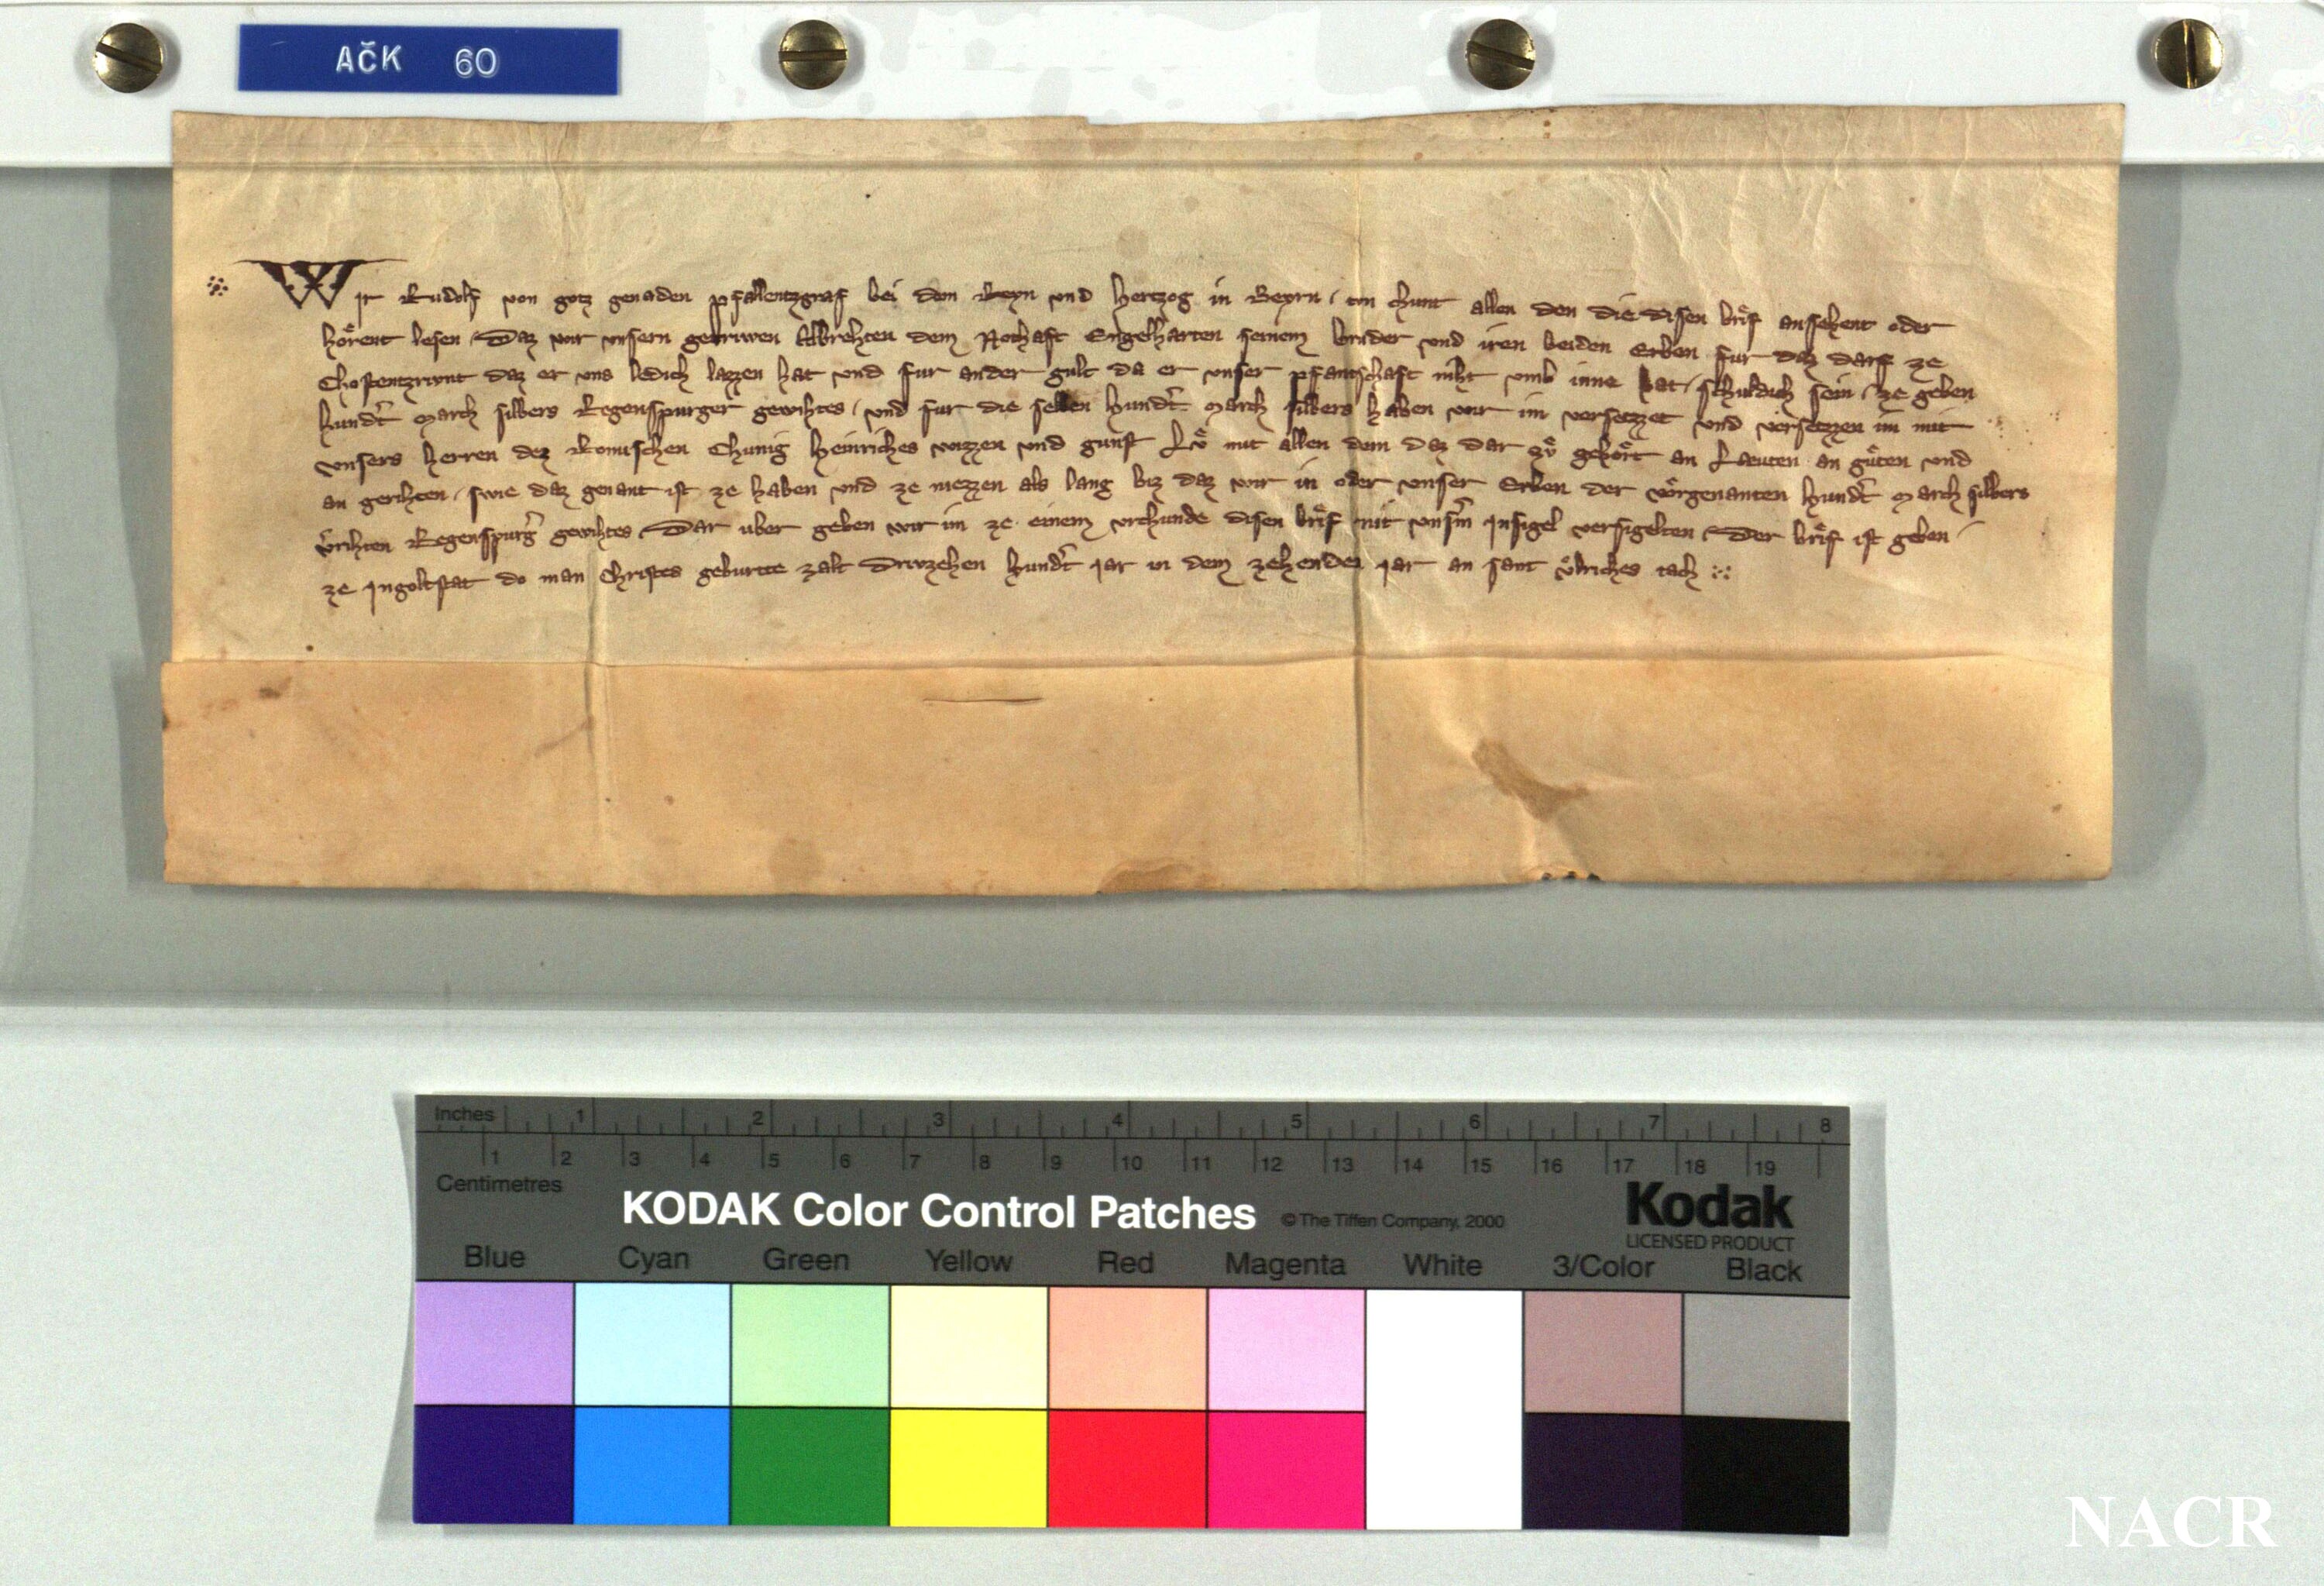 AČK 60
Wir Rudolf von gotz genaden pfallentzgraf bei dem Reyn vnd Hertzog in Beyrn / tvn chunt allen den die disen brͤif ansehent oder
hoͤrent lesen / Daz wir vnsern getriwen Albrehten dem Nothaft Engelharten seinem bruder vnd iren beiden Erben fur daz darff ze
daz er vns ledich lazzen hat vnd fur ander gult da er vnser pfantschaft niht vmb inne hat / schuldich sein / ze geben
hundt̄ march silbers Regenspurger gewihtes / vnd fur die selben hundt̄ march silbers haben wir im versetzzet vnd versetzzen im mit
vnsers herren dez Romischen Chunig Heinriches wizzen vnd gunst mit allen dem daz dar zvͦ gehoͤrt an Laeuten an guͤten vnd
an gerihten / swie daz genant ist ze haben vnd ze niezzen als lang biz daz wir in oder vnser Erben der vorgenanten hundt̄ march silbers
Regenspurḡ gewihtes / Dar uber geben wir im ze einem vrchunde disen brͤif mit vnsm̄ Insigel versigelten / Der brͤif ist geben /
ze Ingoltstat do man Christes geburtte zalt Drivzehen hundt̄ iar in dem zehenden iar an sant vͦlriches tach
Inches 1 2 3 4 5 6 7 8
1 2 3 4 5 6 7 8 9 10 11 12 13 14 15 16 17 18 19
Centimetres
KODAK Color Control Patches © The Tiffen Company, 2000 Kodak
LICENSED PRODUCT
Blue Cyan Green Yellow Red Magenta White 3/Color Black
NACR